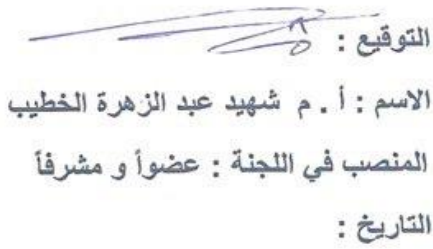 التوقيع :
الاسم : أ . م شهيد عبد الزهرة الخطيب
المنصب في اللجنة : عضواً و مشرفاً
التاريخ :